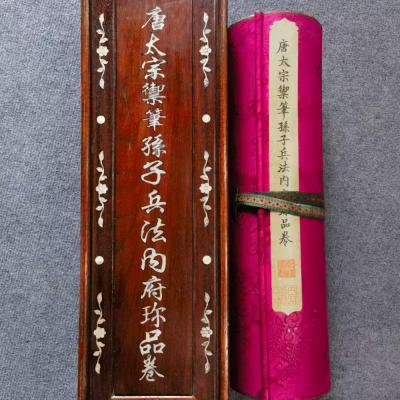 唐太宗禦筆孫子兵法內府珎品卷
唐太宗禦筆孫子兵法內品卷